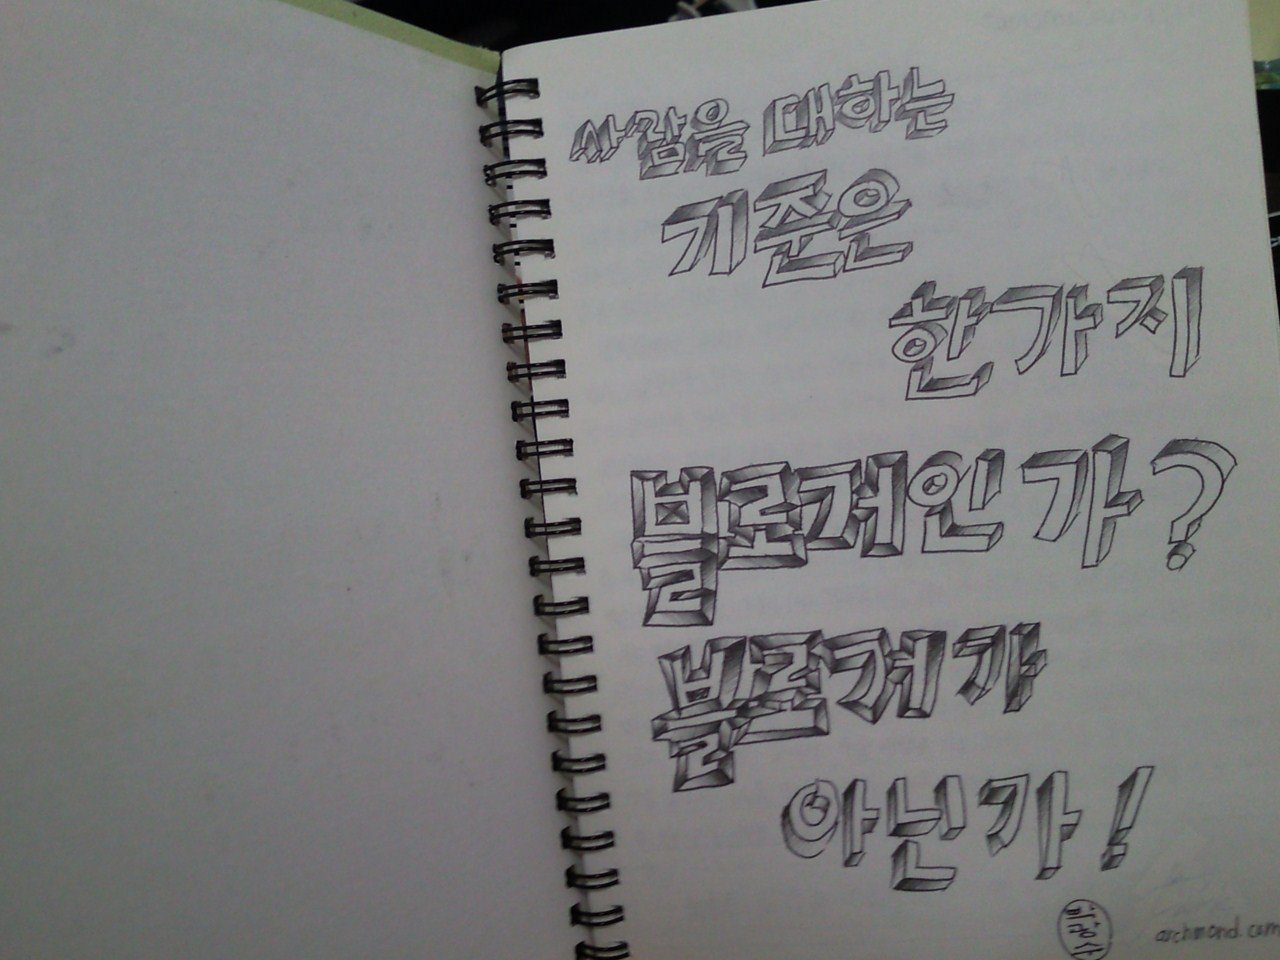 사람을 대하는
기준은
한가지
블로거인가?
블로거가
아닌가!
archmond.com